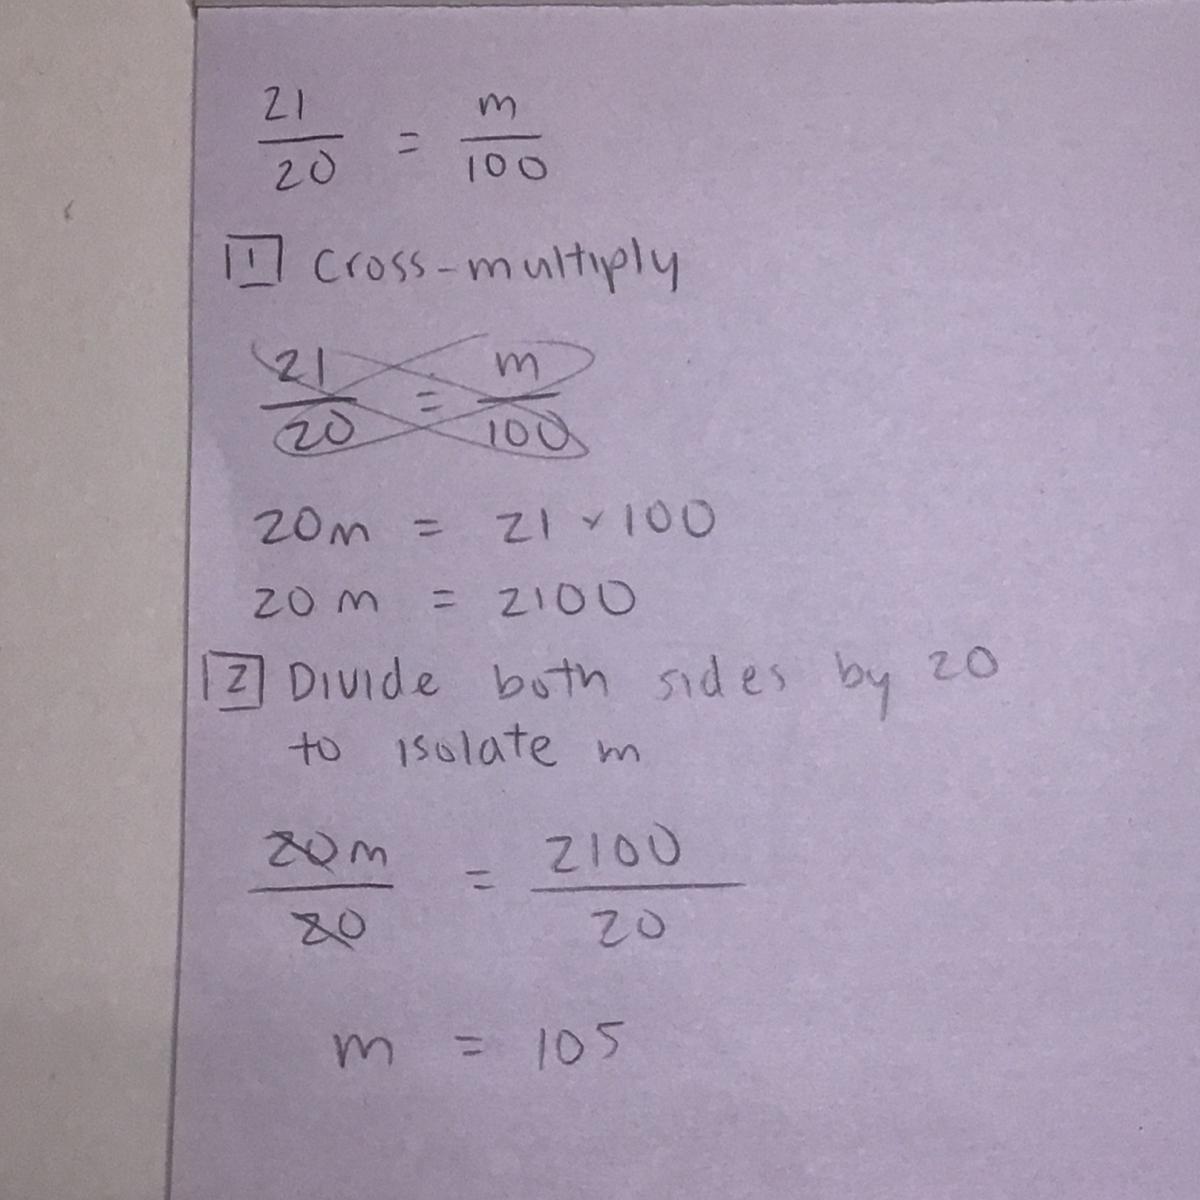 21/20 = m/100
1 Cross-multiply
21/20 = m/100
20m = 21 × 100
20m = 2100
2 Divide both sides by 20
to isolate m
20m/20 = 2100/20
m = 105